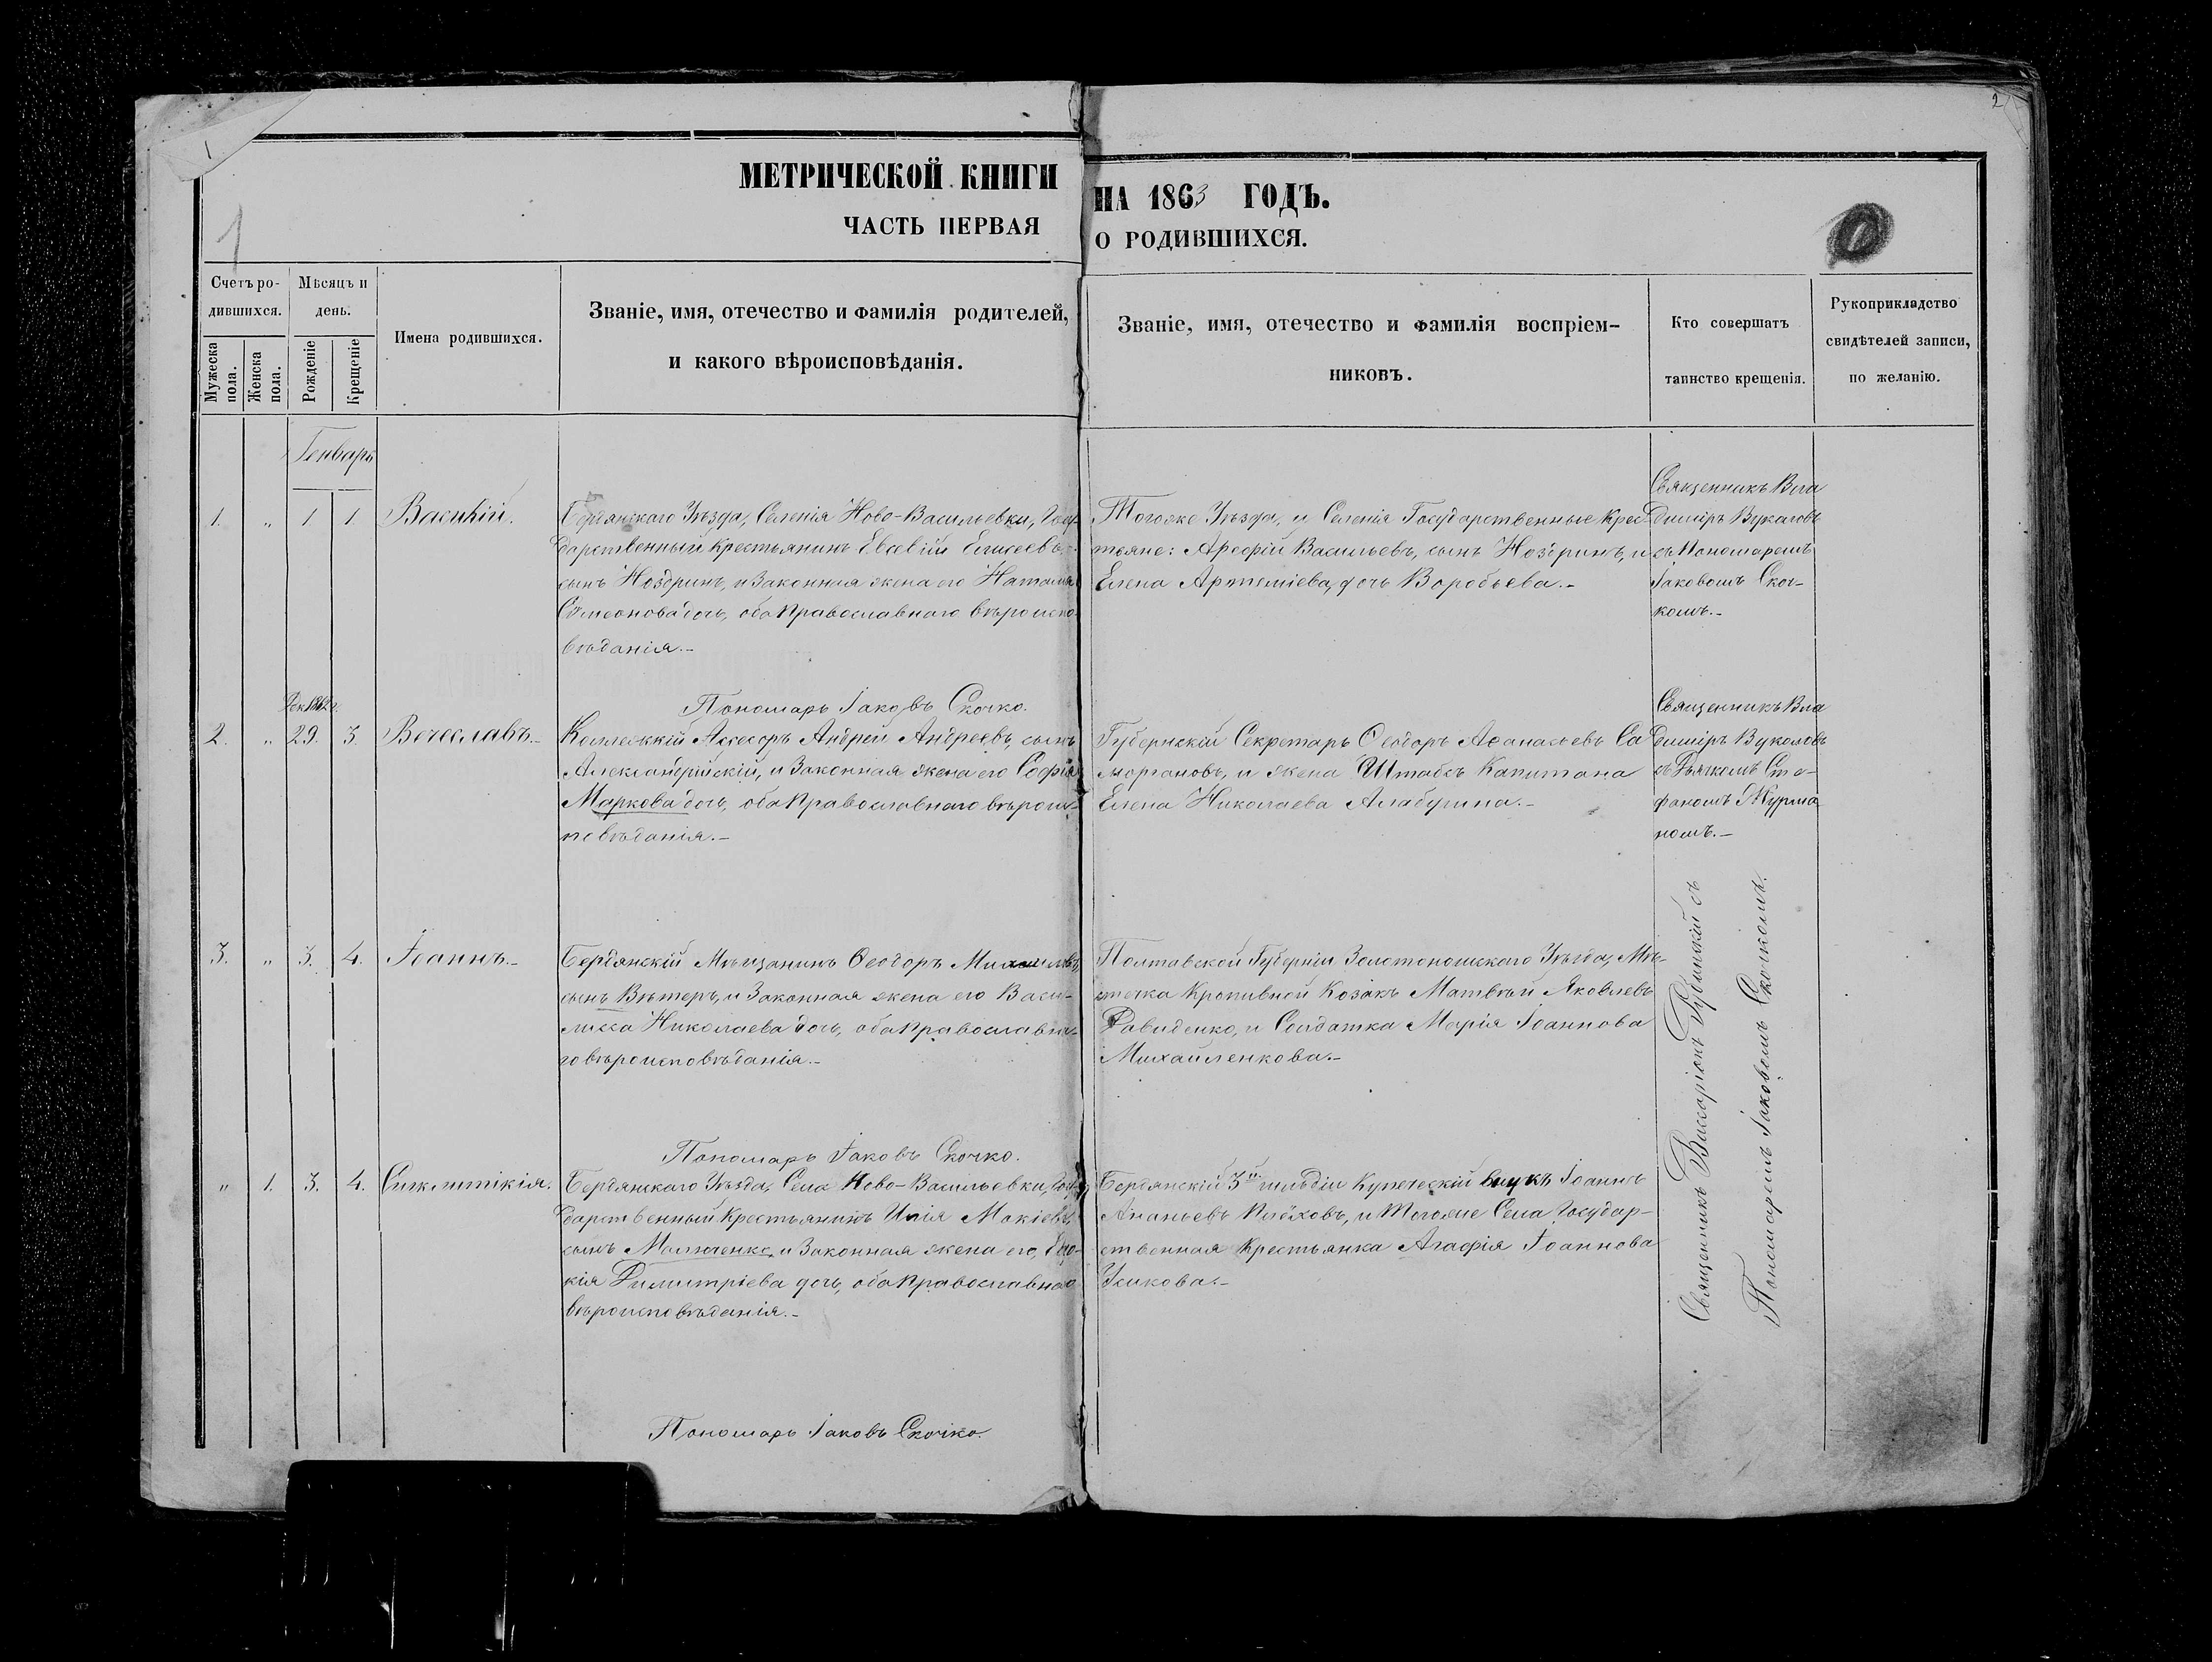 1
2
МЕТРИЧЕСКОЙ КНИГИ НА 1863 ГОДЪ.
ЧАСТЬ ПЕРВАЯ О РОДИВШИХСЯ.
1
Счетъ ро-
дившихся.
Мужеска
пола.
Женска
пола.
Мѣсяцъ и
день.
Рожденіе
Крещеніе
Имена родившихся.
Званіе, имя, отечество и фамилія родителей,
и какого вѣроисповѣданія.
Званіе, имя, отечество и фамилія воспріем-
никовъ.
Кто совершатъ
таинство крещенія.
Рукоприкладство
свидѣтелей записи,
по желанію.
Генварь
1. " 1. 1. Василій.
Бердянскаго Уѣзда, Селенія Ново-Васильевки, Госу-
дарственный Крестьянинъ Евсевій Елисеевъ
сынъ Ноздринъ, и Законная жена его Наталія
Симеонова дочь, оба Православнаго вѣроиспо-
вѣданія.-
Тогоже Уѣзда, и Селенія Государственные Крес-
тьяне: Арефій Васильевъ, сынъ Ноздринъ, и
Елена Артеміева, дочь Воробьева.-
Священникъ Вла
димиръ Вукаловъ
съ Пономаремъ
Іаковомъ Скоч-
комъ.-
Пономарь Іаковъ Скочко.
Дек. 1862 г.
2. " 29. 3. Вечеславъ.-
Коллежскій Ассесоръ Андрей Андреевъ, сынъ
Александрійскій, и Законная жена его Софія
Маркова дочь, оба Православнаго вѣроис-
повѣданія.-
Губернскій Секретарь Ѳеодоръ Аѳанасьевъ Са
моргановъ, и жена Штабсъ Капитана
Елена Николаева Алабушина.-
Священникъ Вла
димиръ Вукаловъ
съ Дьячкомъ Сте-
фаномъ Журма
номъ.-
3. " 3. 4. Іоаннъ.-
Бердянскій Мѣщанинъ Ѳеодоръ Михаиловъ
сынъ Вѣтеръ, и Законная жена его Васи-
лисса Николаева дочь, оба Православна-
го вѣроисповѣданія.-
Полтавской Губерніи Золотоношскаго Уѣзда, Мѣ-
стечка Кропивной Козакъ Матвѣй Яковлевъ
Давиденко, и Солдатка Марія Іоаннова
Михайленкова.-
Священникъ Виссаріонъ съ
Пономаремъ Іаковомъ Скочкомъ.
Пономарь Іаковъ Скочко.
" 1. 3. 4. Синклитикія.
Бердянскаго Уѣзда, Села Ново-Васильевки, Госу-
дарственный Крестьянинъ Илія Мокіевъ
сынъ Малюченко, и Законная жена его, Евдо-
кія Димитріева дочь, оба Православнаго
вѣроисповѣданія.-
Бердянскій 3й гильдіи Купеческій внукъ Іоаннъ
Ананьевъ Плёховъ, и Тогоже Села Государ-
ственная Крестьянка Агафія Іоаннова
Усикова.-
Пономарь Іаковъ Скочко.